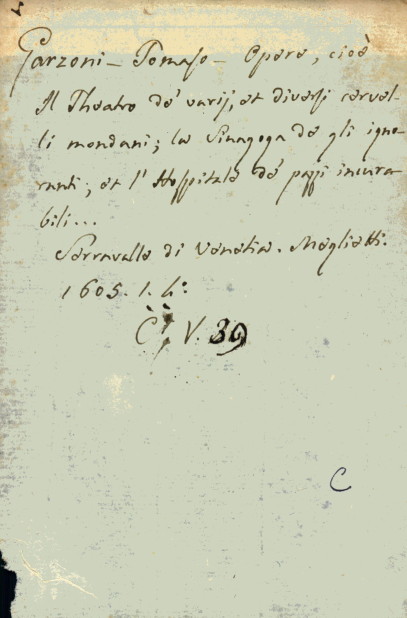 Garzoni - Tomaso - Opere, cioè
Il Theatro de' varij, et diversi cervel-
li mondani; la Sinagoga de gli igno-
ranti; et l'Hospitale de' pazzi incura-
bili...
Serravalle di Venetia. Meglietti.
1605. 1. 4:
C V. 39
C